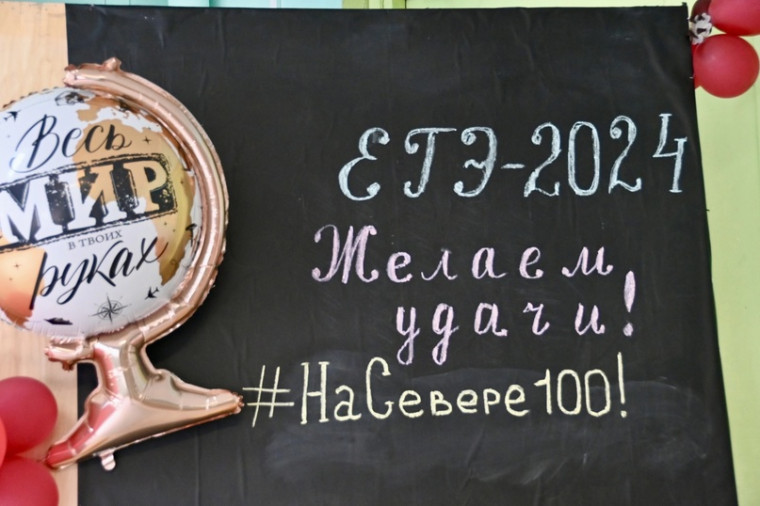 Весь
МИР
В ТВОИХ
руках
ЕГЭ-2024
Желаем
удачи!
#НаСевере100!